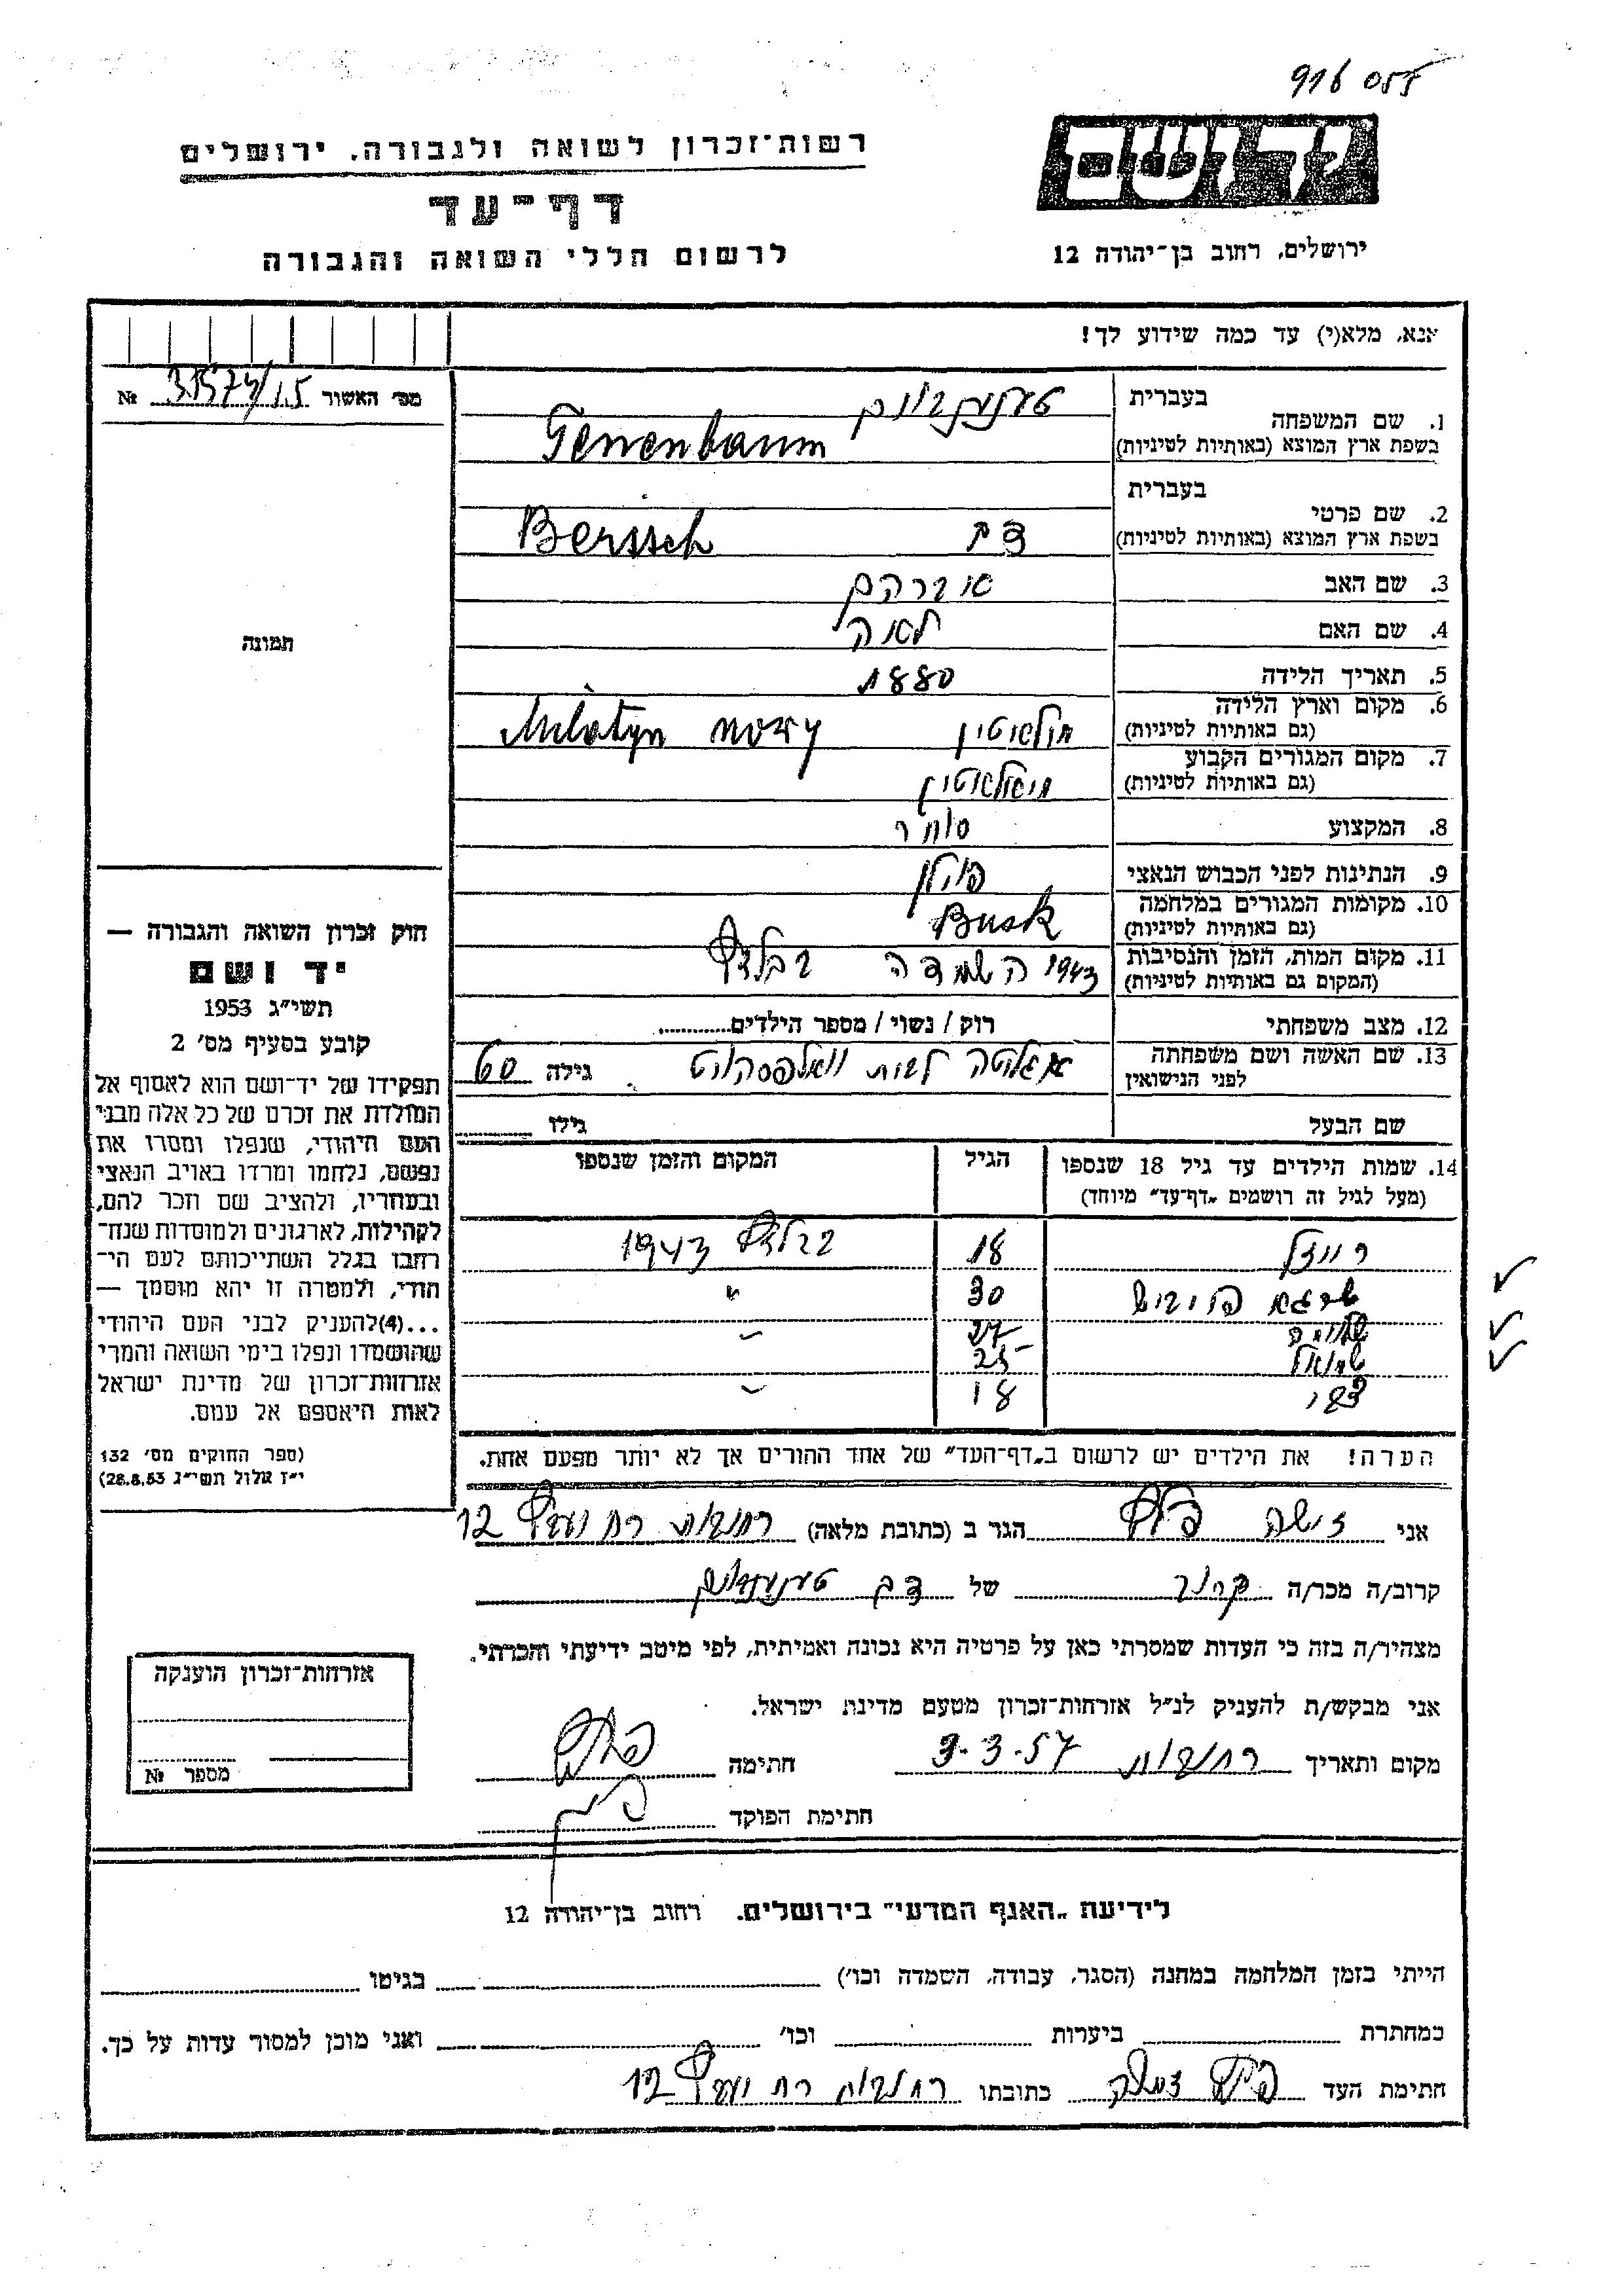 916 055
יד ושם
ירושלים, רחוב בן־יהודה 12
רשות־זכרון לשואה ולגבורה, ירושלים
דף־עד
לרשום חללי השואה והגבורה
אנא, מלא(י) עד כמה שידוע לך!
מס׳ האשור №
1. שם המשפחה בעברית טענענבוים
בשפת ארץ המוצא (באותיות לטיניות) Tennenbaum
2. שם פרטי בעברית
בשפת ארץ המוצא (באותיות לטיניות) דב Berssch
3. שם האב אברהם
4. שם האם לאה
5. תאריך הלידה 1880
6. מקום וארץ הלידה
(גם באותיות לטיניות) Milatyn nowy
7. מקום המגורים הקבוע
(גם באותיות לטיניות)
8. המקצוע סוחר
9. הנתינות לפני הכבוש הנאצי פולין
10. מקומות המגורים במלחמה
(גם באותיות לטיניות) Busk
11. מקום המות, הזמן והנסיבות
(המקום גם באותיות לטיניות) 1943 השמדה בבלזץ
12. מצב משפחתי רוק / נשוי / מספר הילדים
13. שם האשה ושם משפחתה
לפני הנישואין לבית גילה 60
שם הבעל גילו
14. שמות הילדים עד גיל 18 שנספו הגיל המקום והזמן שנספו
(מעל לגיל זה רושמים „דף־עד״ מיוחד)
18 בבלזץ 1943
שרגא 30 "
27 "
שמואל 25
18 "
הערה! את הילדים יש לרשום ב„דף־העד״ של אחד ההורים אך לא יותר מפעם אחת.
תמונה
חוק זכרון השואה והגבורה —
יד ושם
תשי״ג 1953
קובע בסעיף מס׳ 2
תפקידו של יד־ושם הוא לאסוף אל
המולדת את זכרם של כל אלה מבני
העם היהודי, שנפלו ומסרו את
נפשם, נלחמו ומרדו באויב הנאצי
ובעוזריו, ולהציב שם וזכר להם,
לקהילות, לארגונים ולמוסדות שנח־
רבו בגלל השתייכותם לעם הי־
הודי, ולמטרה זו יהא מוסמך —
...(4)להעניק לבני העם היהודי
שהושמדו ונפלו בימי השואה והמרי
אזרחות־זכרון של מדינת ישראל
לאות היאספם אל עמם.
(ספר החוקים מס׳ 132
י״ז אלול תשי״ג 28.8.53)
אני הגר ב (כתובת מלאה) רחובות רח 12
קרוב/ה מכר/ה קרוב של דב טענענבוים
מצהיר/ה בזה כי העדות שמסרתי כאן על פרטיה היא נכונה ואמיתית, לפי מיטב ידיעתי והכרתי.
אני מבקש/ת להעניק לנ״ל אזרחות־זכרון מטעם מדינת ישראל.
מקום ותאריך רחובות 3.3.57 חתימה
חתימת הפוקד
אזרחות־זכרון הוענקה
מספר №
לידיעת „האגף המדעי״ בירושלים. רחוב בן־יהודה 12
הייתי בזמן המלחמה במחנה (הסגר, עבודה, השמדה וכו׳) בגיטו
במחתרת ביערות וכו׳ ואני מוכן למסור עדות על כך.
חתימת העד כתובתו רחובות רח 12